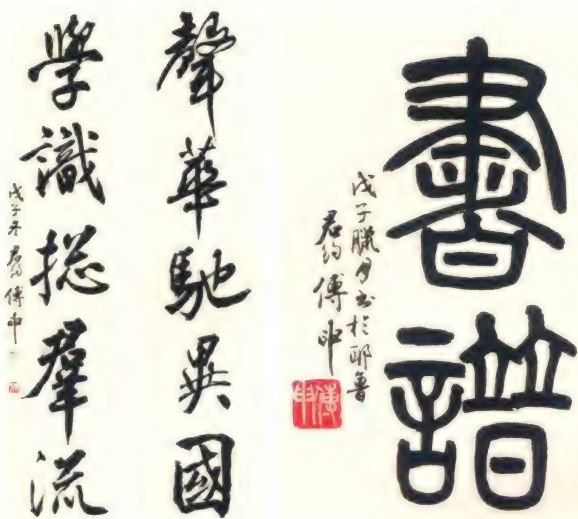 書譜
戊子臘月書於耶魯
君約傅申
傅申
聲華馳異國
學識揔羣流
戊子冬君約傅申